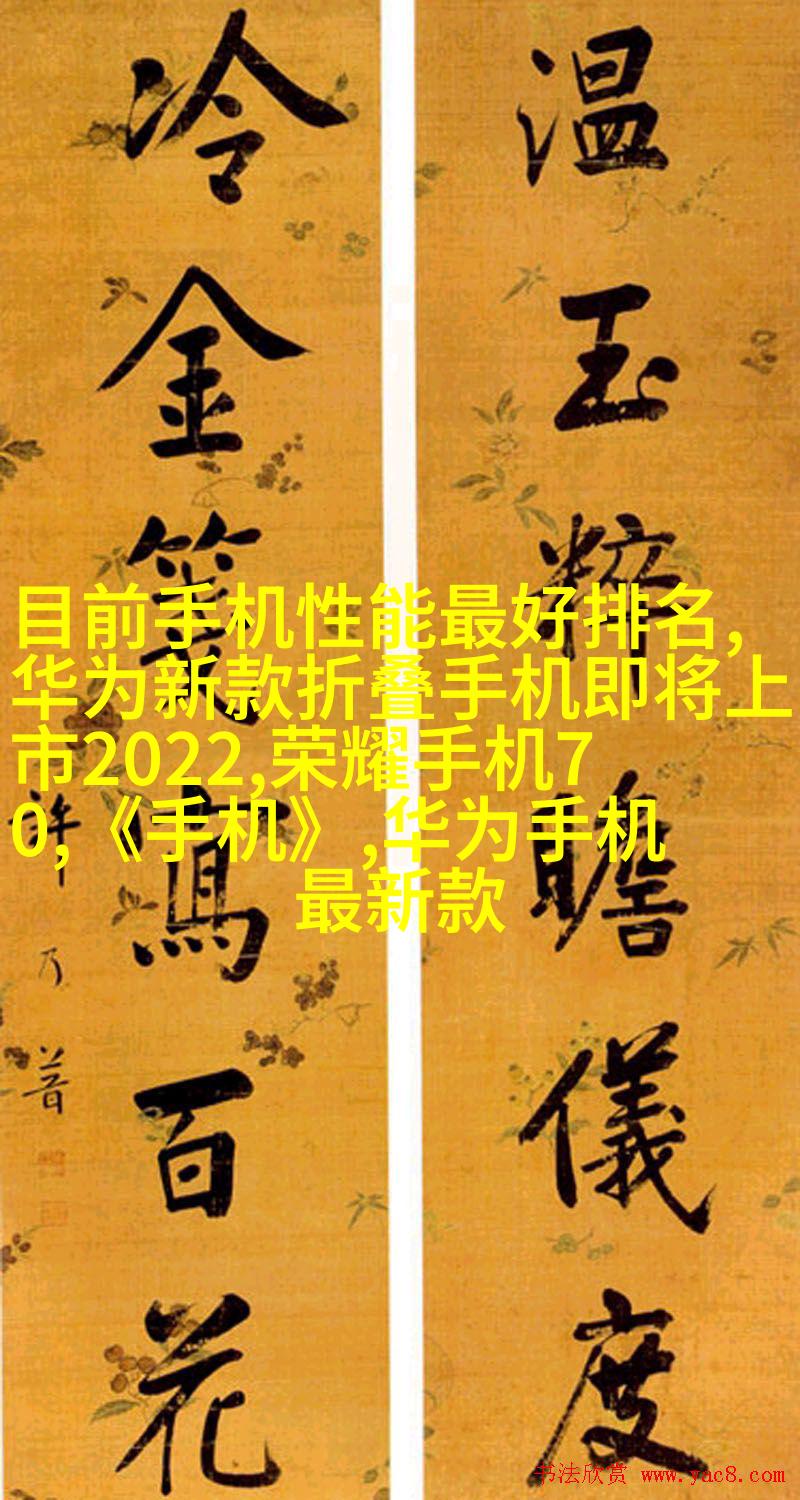 温玉粹瞻儀度
冷金箋寫百花
許乃普
目前手机性能最好排名,
华为新款折叠手机即将上
市2022,荣耀手机7
0,《手机》,华为手机
最新款
书法欣赏 www.yac8.com